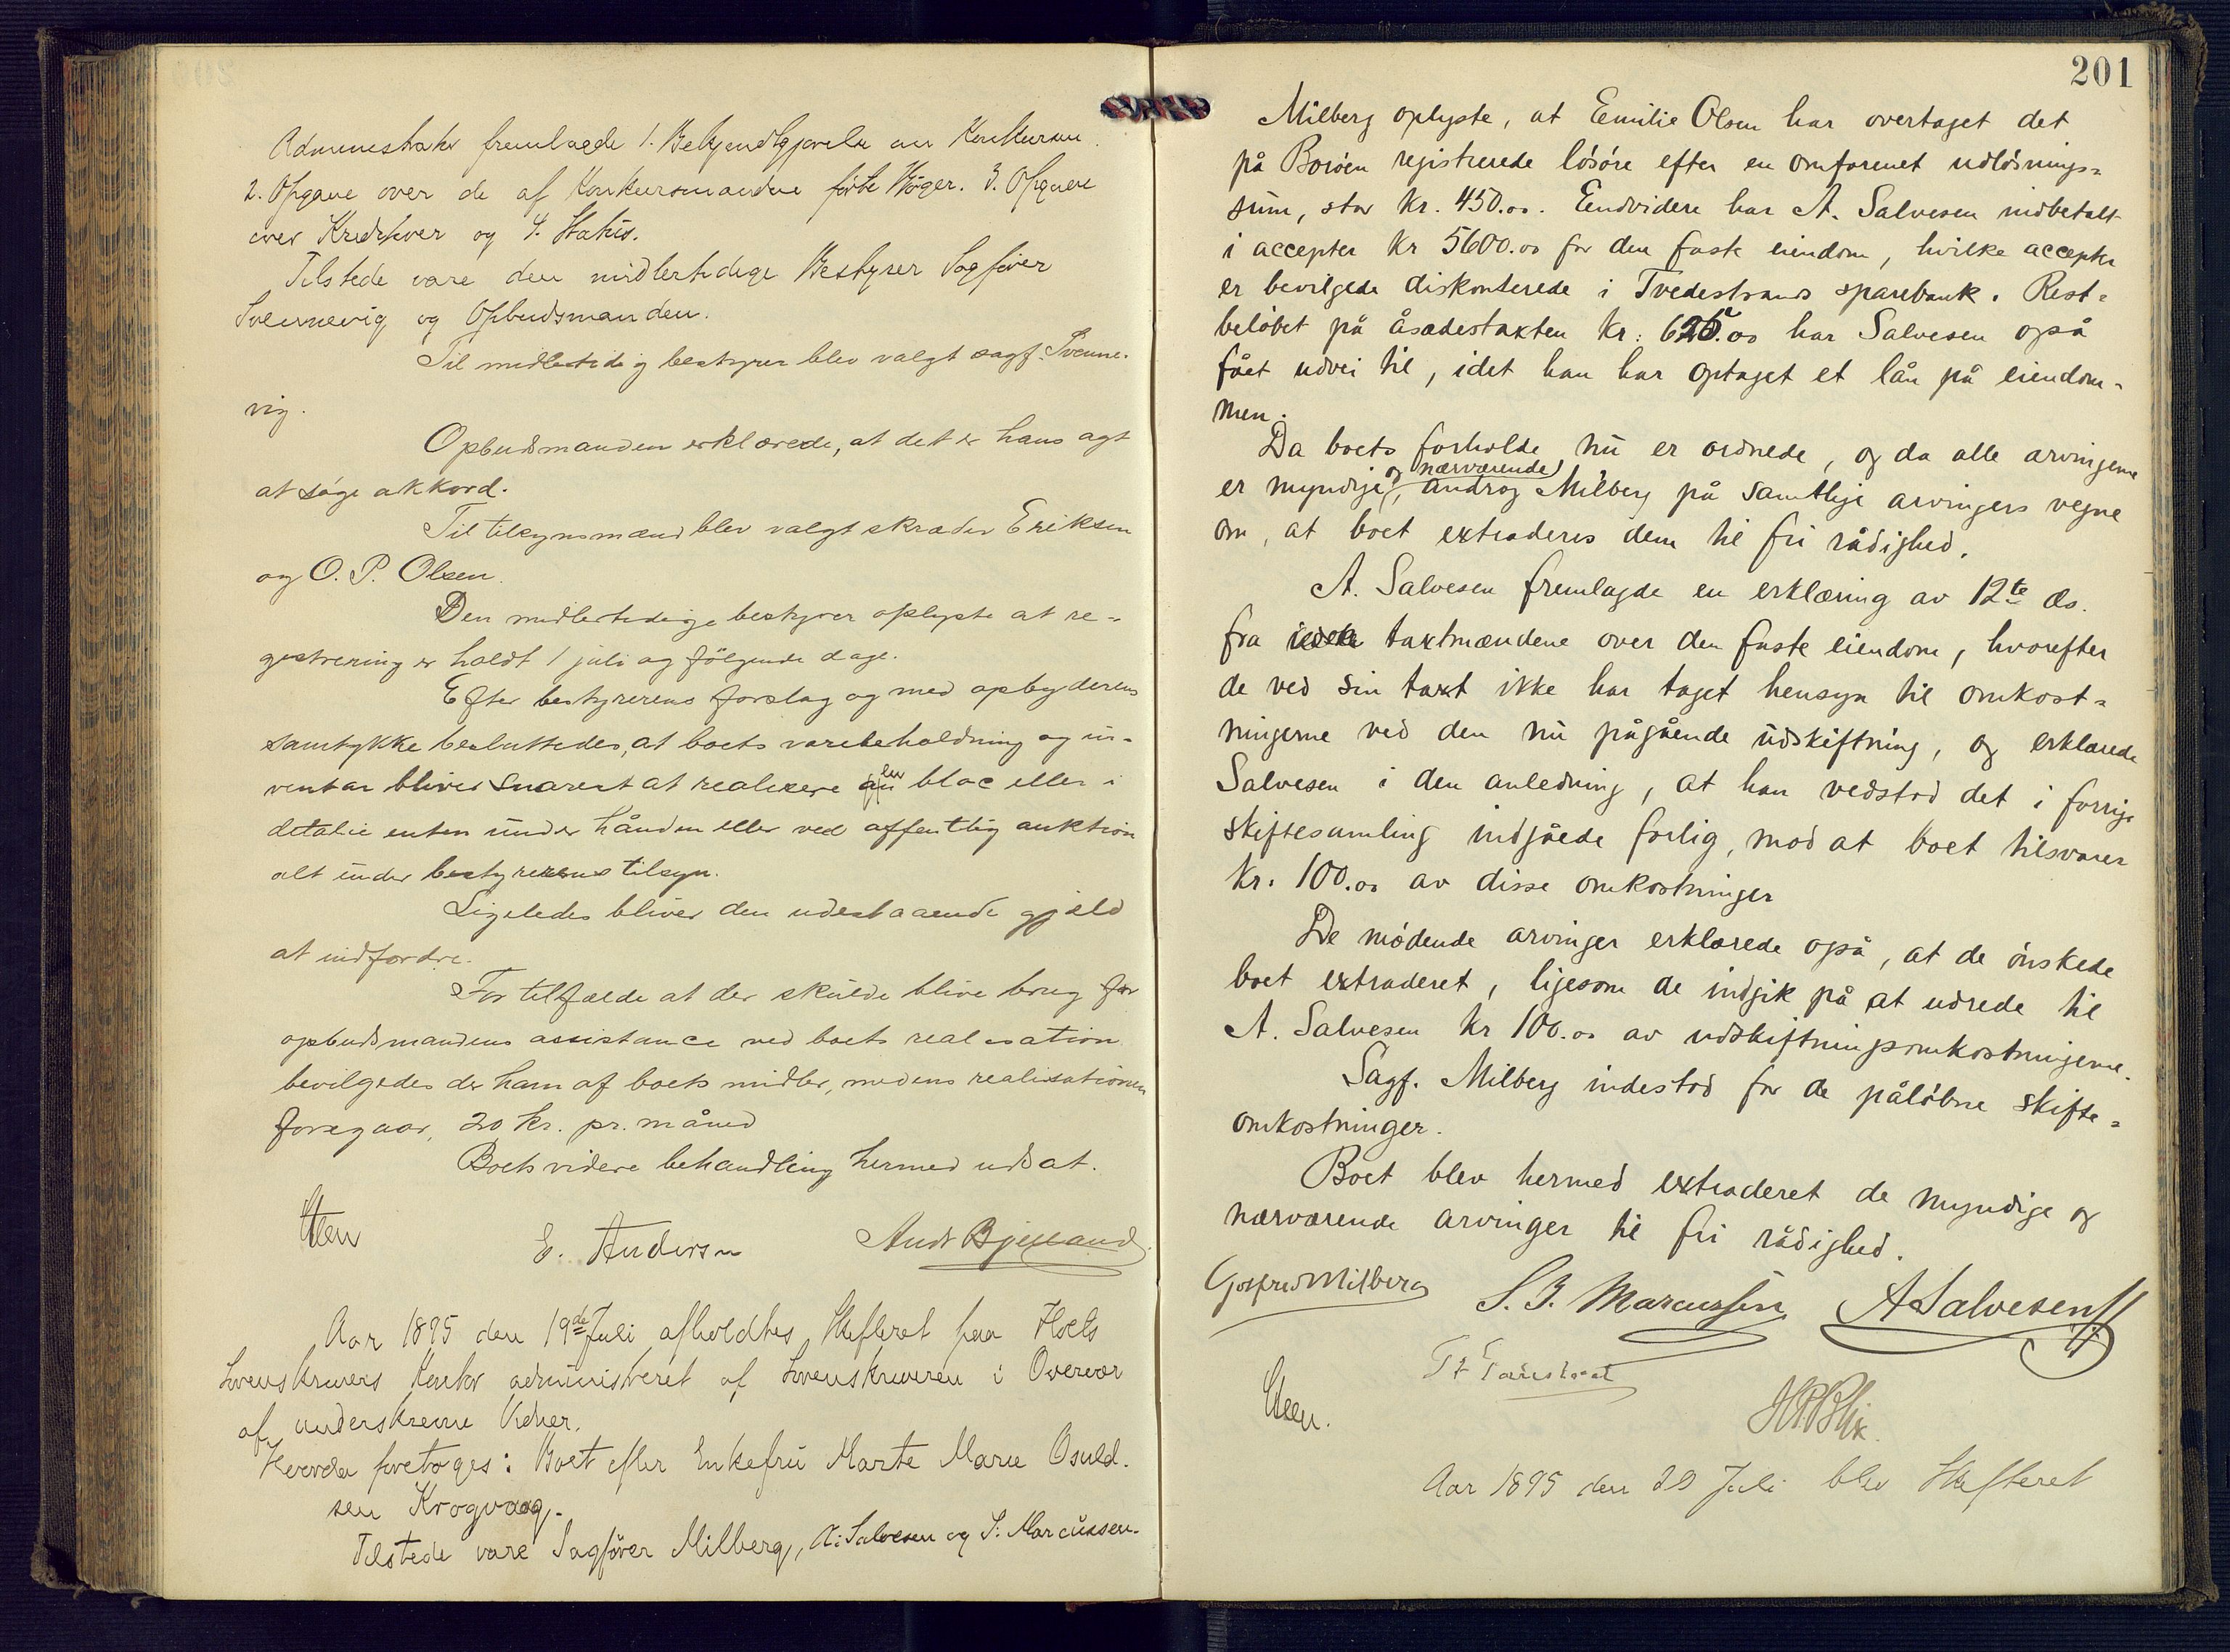 Administrator fremlagde 1. Bekjendtgjørelse om Konkursen.
2. Opgave over de af Konkursmanden førte Bøger. 3. Opgave
over Kreditorer og 4. Status.
Tilstede vare den midlertidige Bestyrer Sagfører
Svennevig og Opbudsmanden.
Til midlertidig bestyrer blev valgt sagf. Svenne-
vig.
Opbudsmanden erklærede, at det er hans agt
at søge akkord.
Til tilsynsmænd blev valgt skræder Eriksen
og O. P. Olsen.
Den midlertidige bestyrer oplyste at re-
gistrering er holdt 1 juli og følgende dage.
Efter bestyrerens forslag og med opbyderens
samtykke besluttedes, at boets varebeholdning og in-
ventar bliver snarest at realisere en bloc eller i
detalie enten under hånden eller ved offentlig auktion
alt under bestyrerens tilsyn.
Ligeledes bliver den udestaaende gjæld
at indfordre.
For tilfælde at der skulde blive brug for
opbudsmandens assistance ved boets realisation
bevilgedes der ham af boets midler, medens realisationen
foregaar, 20 kr. pr. måned
Boets videre behandling hermed udsat.
Steen
E. Andersen
Andr Bjelland
Aar 1895 den 19de Juli afholdtes Skifteret paa Holts
Sorenskrivers Kontor administreret af Sorenskriveren i Overvær
af underskrevne Vidner.
Hvorda foretoges: Boet efter Enkefru Marte Marie Osuld-
sen Krogvaag.
Tilstede vare Sagfører Milberg, A. Salvesen og S. Marcussen.
201
Milberg oplyste, at Emilie Olsen har overtaget det
på Borøen registrerede løsøre efter en omforenet udløsnings-
sum, stor kr. 450.00. Endvidere har A. Salvesen indbetalt
i accepter kr 5600.00 for den faste eiendom, hvilke accepter
er bevilgede diskonterede i Tvedestrands sparebank. Rest-
beløbet på åsædestaxten kr: 625.00 har Salvesen også
fået udvei til, idet han har optaget et lån på eiendom-
men.
Da boets forholde nu er ordnede, og da alle arvingerne
er myndige og nærværende, androg Milberg på samtlige arvingers vegne
om, at boet extraderes dem til fri rådighed.
A. Salvesen fremlagde en erklæring av 12te ds.
fra taxtmændene over den faste eiendom, hvorefter
de ved sin taxt ikke har taget hensyn til omkost-
ningerne ved den nu pågående udskiftning, og erklærede
Salvesen i den anledning, at han vedstod det i forrige
skiftesamling indgåede forlig, mod at boet tilsvarer
kr. 100.00 av disse omkostninger
De mødende arvinger erklærede også, at de ønskede
boet extraderet, ligesom de indgik på at udrede til
A. Salvesen kr 100.00 av udskiftningsomkostningerne.
Sagf. Milberg indestod for de påløbne skifte-
omkostninger.
Boet blev hermed extraderet de myndige og
nærværende arvinger til fri rådighed.
Gotfred Milberg
S. J. Marcussen
A Salvesen
Steen.
Aar 1895 den 20 Juli blev Skifteret